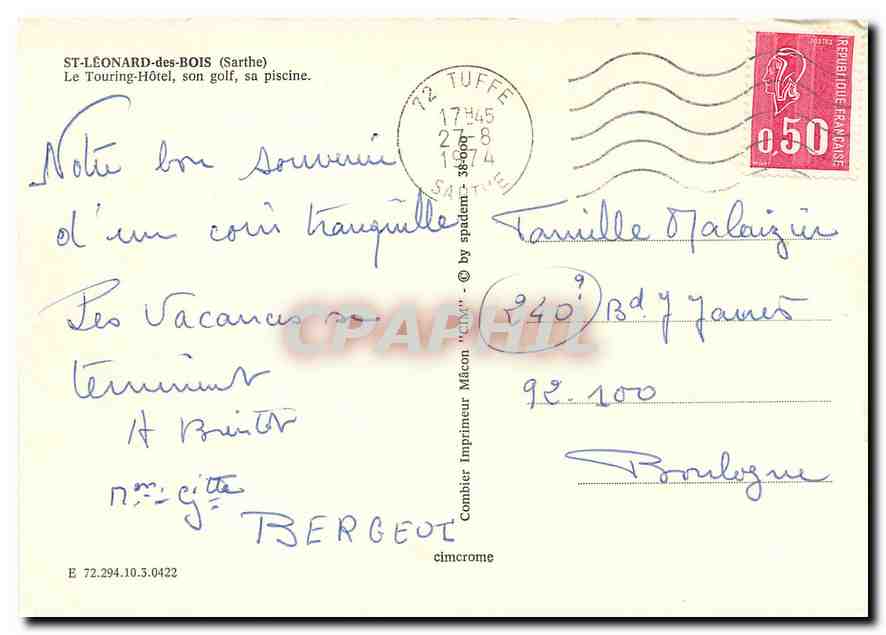 ST-LÉONARD-des-BOIS (Sarthe)
Le Touring-Hôtel, son golf, sa piscine.
72 TUFFE
17H45
27-8
1974
SARTHE
POSTES
REPUBLIQUE FRANÇAISE
0,50
Notre bon souvenir
d'un coin tranquille
Les Vacances se
terminent
A Bientôt
BERGEOT
Famille Malaizier
240 ? Bd J Jaurès
92.100
Boulogne
Combier Imprimeur Mâcon "CIM" - © by spadem - 38-000
CPAPHIL
cimcrome
E 72.294.10.3.0422